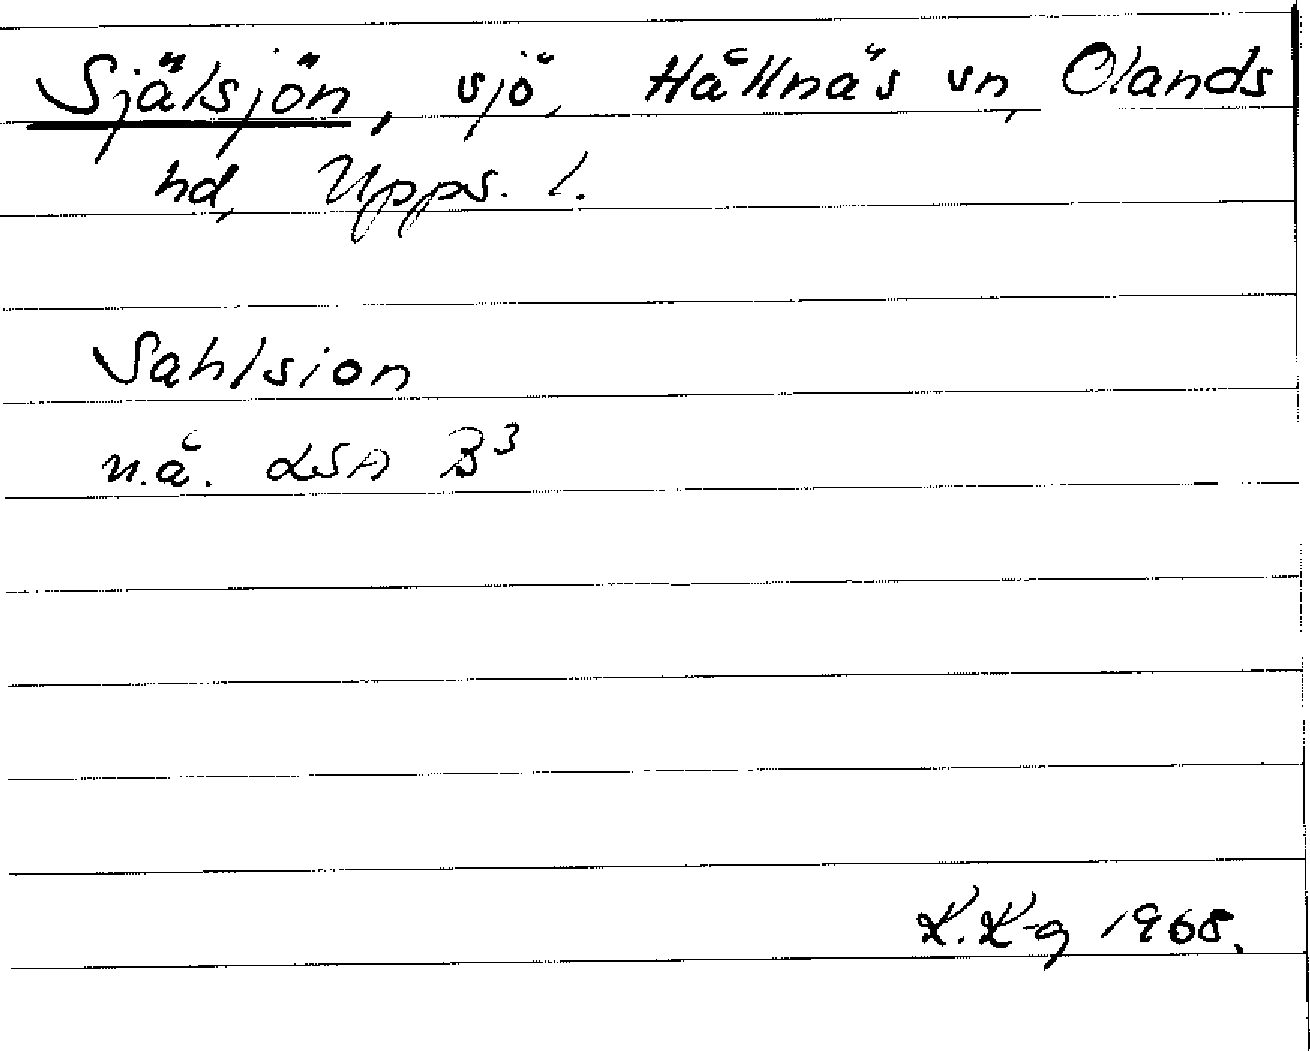 Själsjön, sjö, Hållnäs sn, Olands
hd, Upps. l.
Sahlsion
n.å. LSA B³
K. K-g 1968.